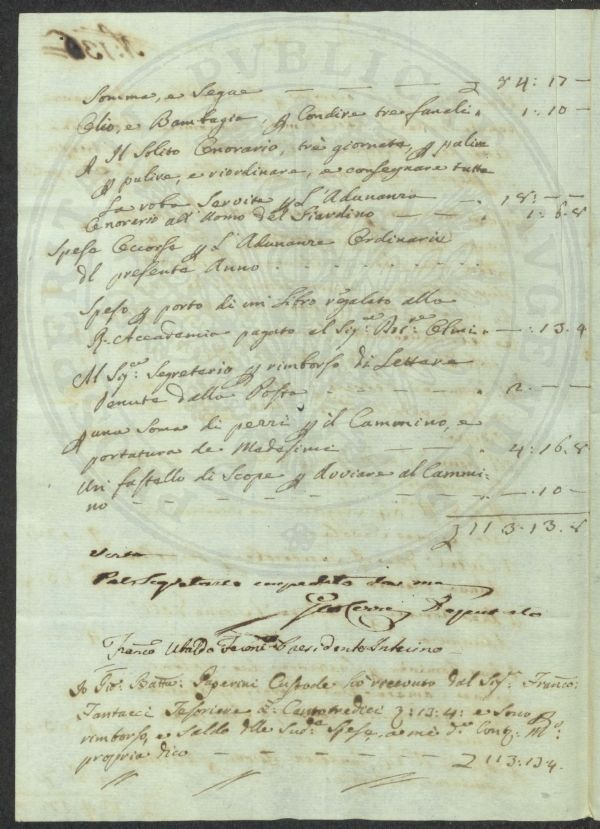 N.° 136
Somma, e Segue — — — £ 84: 17 —
Olio, e Bambagia, p Condire tre fanali „ 1: 10 —
A Il Solito Onorario, tre giornate, p pulire
p pulire, e riordinare, e consegnare tutta
La roba Servita p L'Adunanza — „ 18: — —
Onorario all'Uomo del Giardino — — „ 1: 6. 8
Spese Occorse p L'Adunanze Ordinarie
dl presente Anno
Speso p porto di un Libro regalato alla
R. Accademia pagato al Sig.re „ — : 13. 4
Al Sig.re Segretario p rimborso di Lettere
Venute dalla Posta — — — „ 2. — —
p una Soma di pezzi p il Cammino, e
portatura de Medesimi — — „ 4: 16. 8
Un fastello di Scope p Avviare al Cammi-
no — — — — — — — „ — . 10 —
£ 113. 13. 8
Segretario
Franco Ubaldo Feroni Presidente Interino
Io Gio: Batta: Paperini Custode hò ricevuto dal Sig.re Franco:
Fantacci Tesoriere £ Centotredici £: 13: 4: e Sono
rimborso, e Saldo delle Sud.e Spese, a me d.o Cont.i M.o
propria dico — — — — £ 113: 13 4.